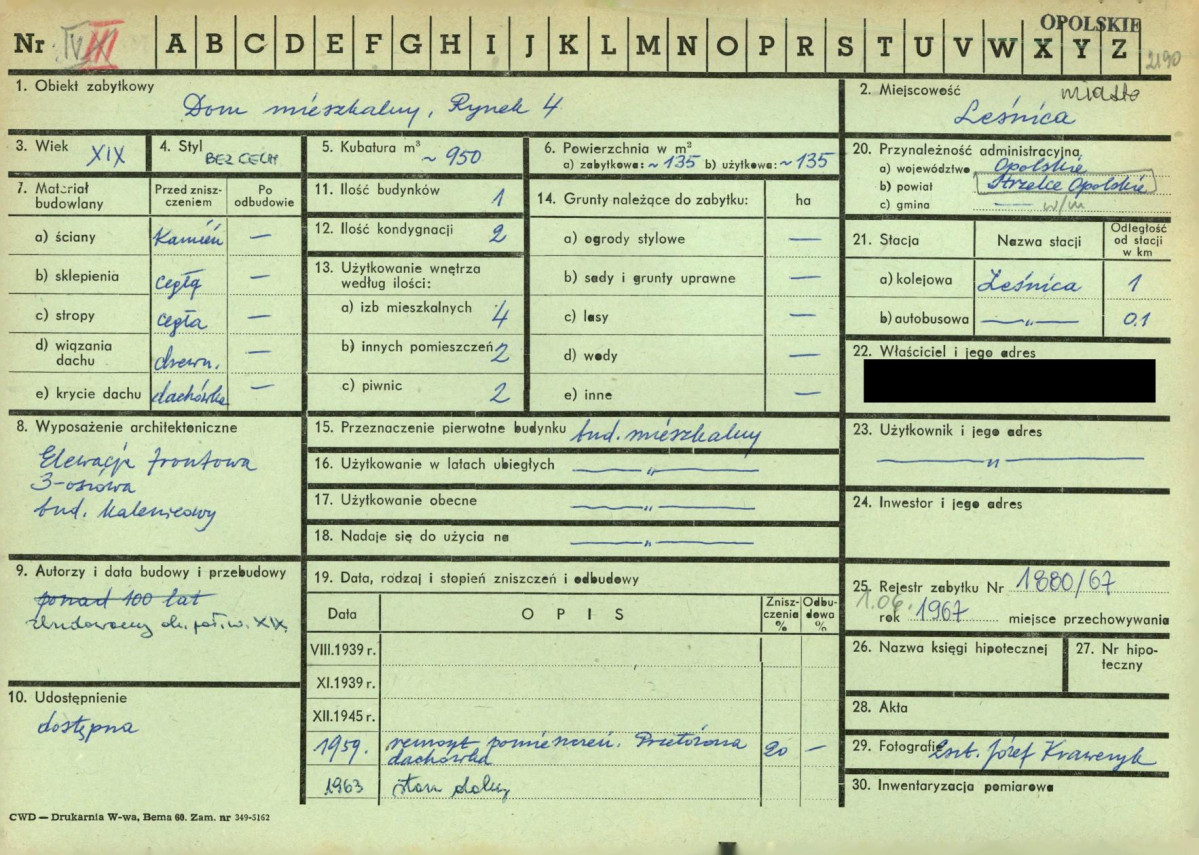 OPOLSKIE
Nr IV III A B C D E F G H I J K L M N O P R S T U V W X Y Z 2190
1. Obiekt zabytkowy
Dom mieszkalny, Rynek 4
2. Miejscowość
miasto
Leśnica
3. Wiek XIX
4. Styl BEZ CECH
5. Kubatura m³ ~ 950
6. Powierzchnia w m²
a) zabytkowa: ~ 135 b) użytkowa: ~ 135
20. Przynależność administracyjna
a) województwo Opolskie
b) powiat Strzelce Opolskie
c) gmina — w/m
7. Materiał budowlany
Przed zniszczeniem
Po odbudowie
a) ściany Kamień —
b) sklepienia cegłą —
c) stropy cegła —
d) wiązania dachu drewn. —
e) krycie dachu dachówka —
11. Ilość budynków 1
12. Ilość kondygnacji 2
13. Użytkowanie wnętrza
według ilości:
a) izb mieszkalnych 4
b) innych pomieszczeń 2
c) piwnic 2
14. Grunty należące do zabytku: ha
a) ogrody stylowe —
b) sady i grunty uprawne —
c) lasy —
d) wody —
e) inne —
21. Stacja Nazwa stacji Odległość od stacji w km
a) kolejowa Leśnica 1
b) autobusowa —„— 0.1
22. Właściciel i jego adres
8. Wyposażenie architektoniczne
Elewacja frontowa
3-osiowa
bud. kalenicowy
15. Przeznaczenie pierwotne budynku bud. mieszkalny
16. Użytkowanie w latach ubiegłych —„—
17. Użytkowanie obecne —„—
18. Nadaje się do użycia na —„—
23. Użytkownik i jego adres
—„—
24. Inwestor i jego adres
9. Autorzy i data budowy i przebudowy
ponad 100 lat
zbudowany ok. poł. w. XIX.
10. Udostępnienie
dostępna
19. Data, rodzaj i stopień zniszczeń i odbudowy
Data OPIS Zniszczenia % Odbudowa %
VIII.1939 r.
XI.1939 r.
XII.1945 r.
1959. remont pomieszczeń. Przełożona
dachówka 20 —
1963 stan dobry
25. Rejestr zabytku Nr 1880/67
1.06.
rok 1967 miejsce przechowywania
26. Nazwa księgi hipotecznej
27. Nr hipoteczny
28. Akta
29. Fotografie Józef Krawczyk
30. Inwentaryzacja pomiarowa
CWD — Drukarnia W-wa, Bema 60. Zam. nr 349-5162